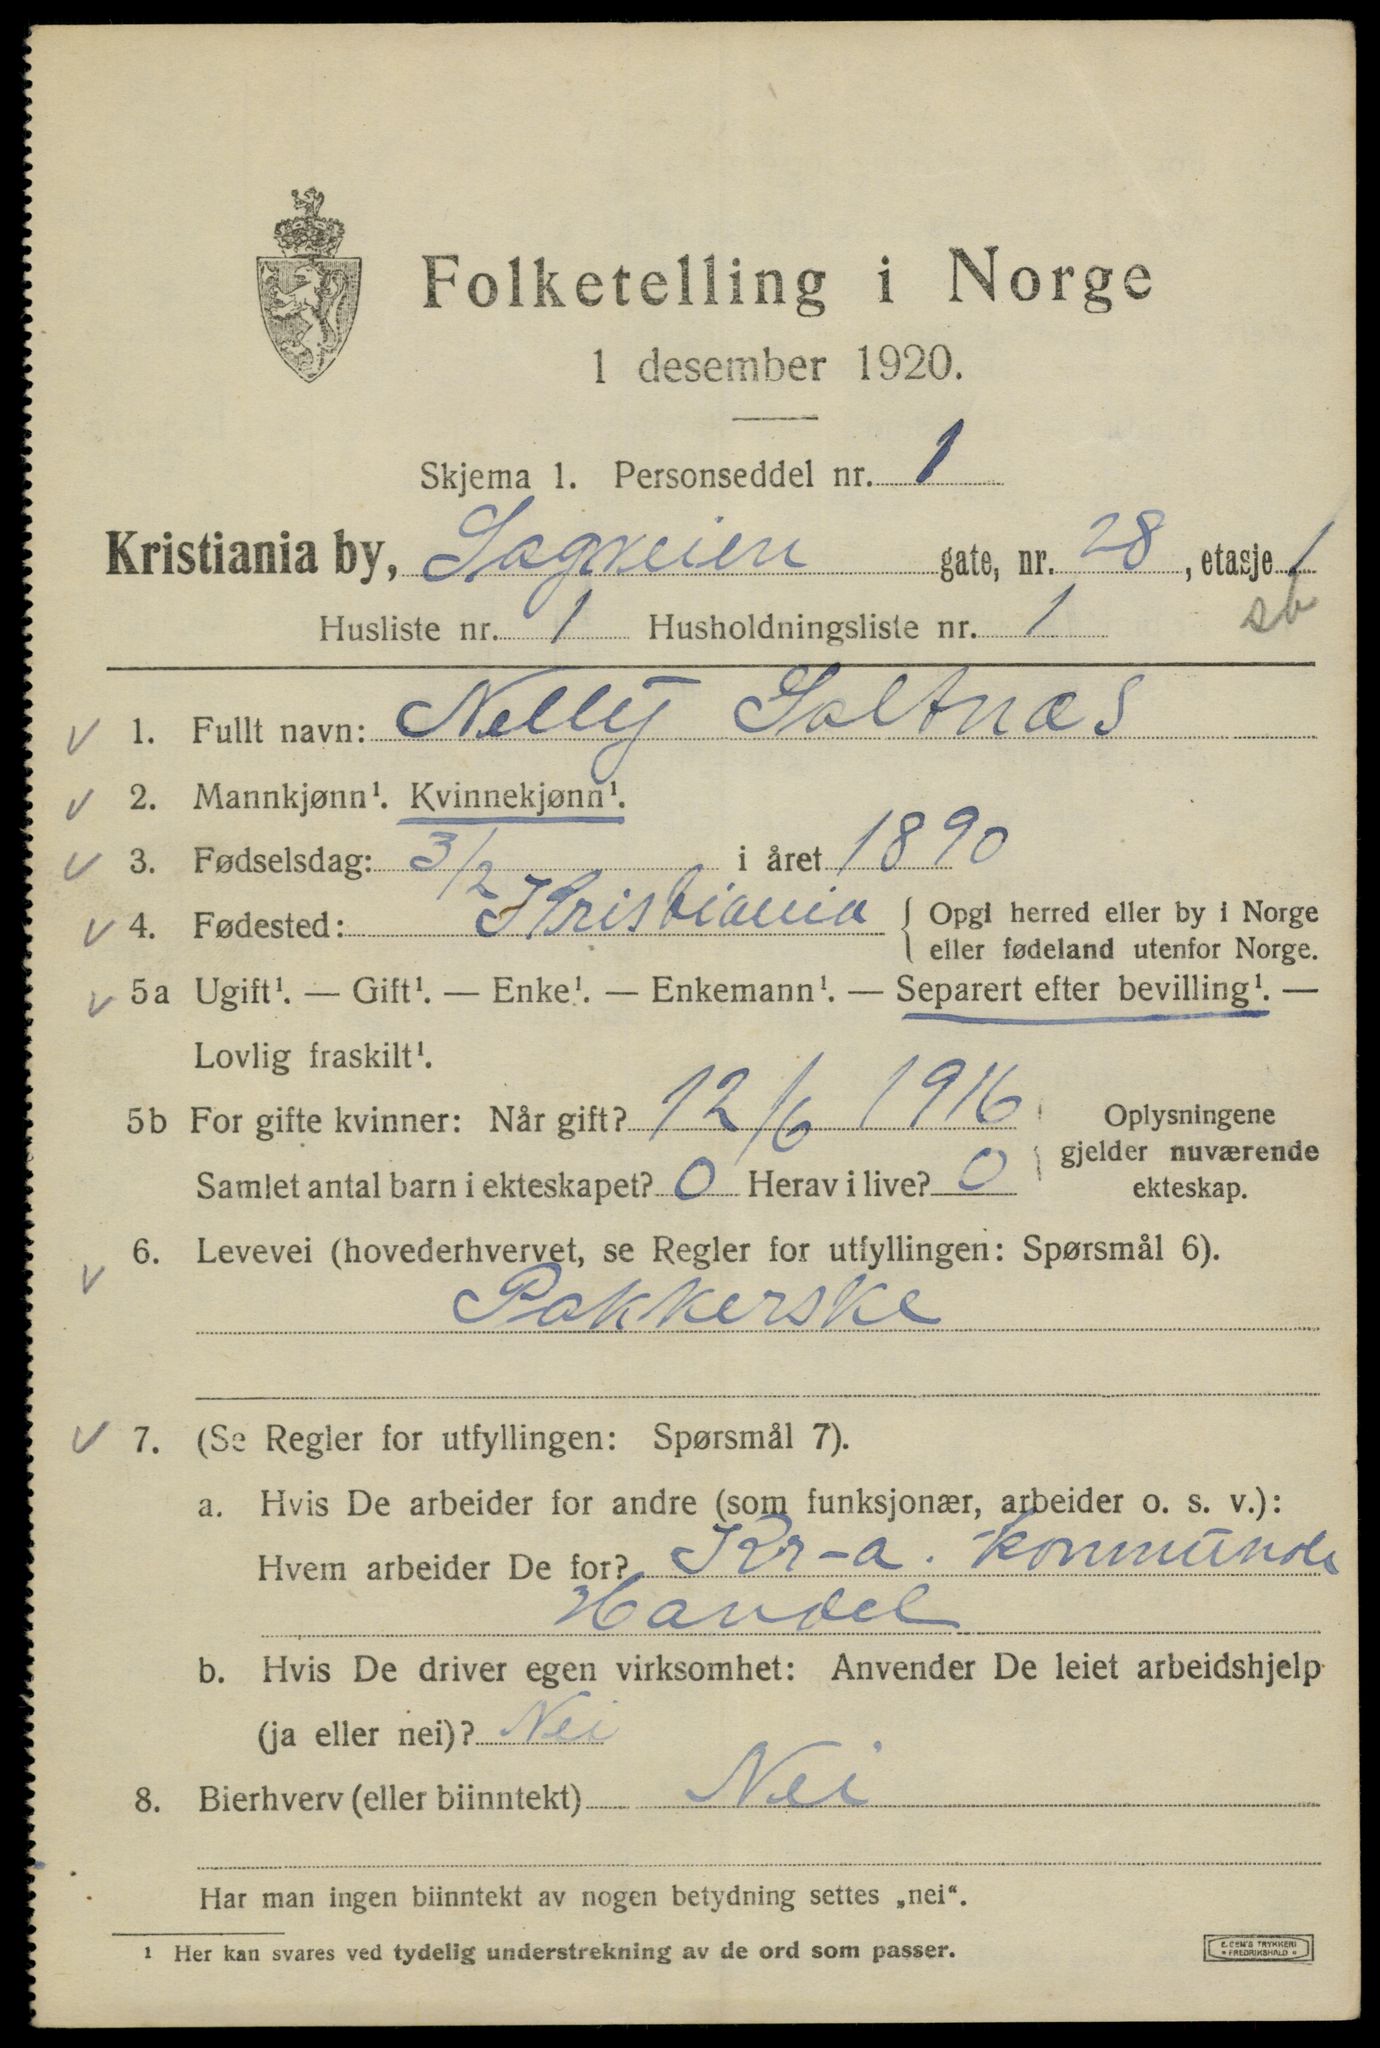 Folketelling i Norge
1 desember 1920.
Skjema 1. Personseddel nr. 1
Kristiania by, Sagveien gate, nr. 28, etasje 1
sb
Husliste nr. 1 Husholdningsliste nr. 1
1. Fullt navn: Nelly Saltnæs
2. Mannkjønn¹. Kvinnekjønn¹.
3. Fødselsdag: 3/2 i året 1890
4. Fødested: Kristiania { Opgi herred eller by i Norge
eller fødeland utenfor Norge.
5a Ugift¹. — Gift¹. — Enke¹. — Enkemann¹. — Separert efter bevilling¹. —
Lovlig fraskilt¹.
5b For gifte kvinner: Når gift? 12/6 1916 Oplysningene
gjelder nuværende
Samlet antal barn i ekteskapet? 0 Herav i live? 0 ekteskap.
6. Levevei (hovederhvervet, se Regler for utfyllingen: Spørsmål 6).
Pakkerske
7. (Se Regler for utfyllingen: Spørsmål 7).
a. Hvis De arbeider for andre (som funksjonær, arbeider o. s. v.):
Hvem arbeider De for? Kr-a. Kommunale
Handel
b. Hvis De driver egen virksomhet: Anvender De leiet arbeidshjelp
(ja eller nei)? Nei
8. Bierhverv (eller biinntekt) Nei
Har man ingen biinntekt av nogen betydning settes „nei“.
¹ Her kan svares ved tydelig understrekning av de ord som passer.
E. SEM'S TRYKKERI
FREDRIKSHALD